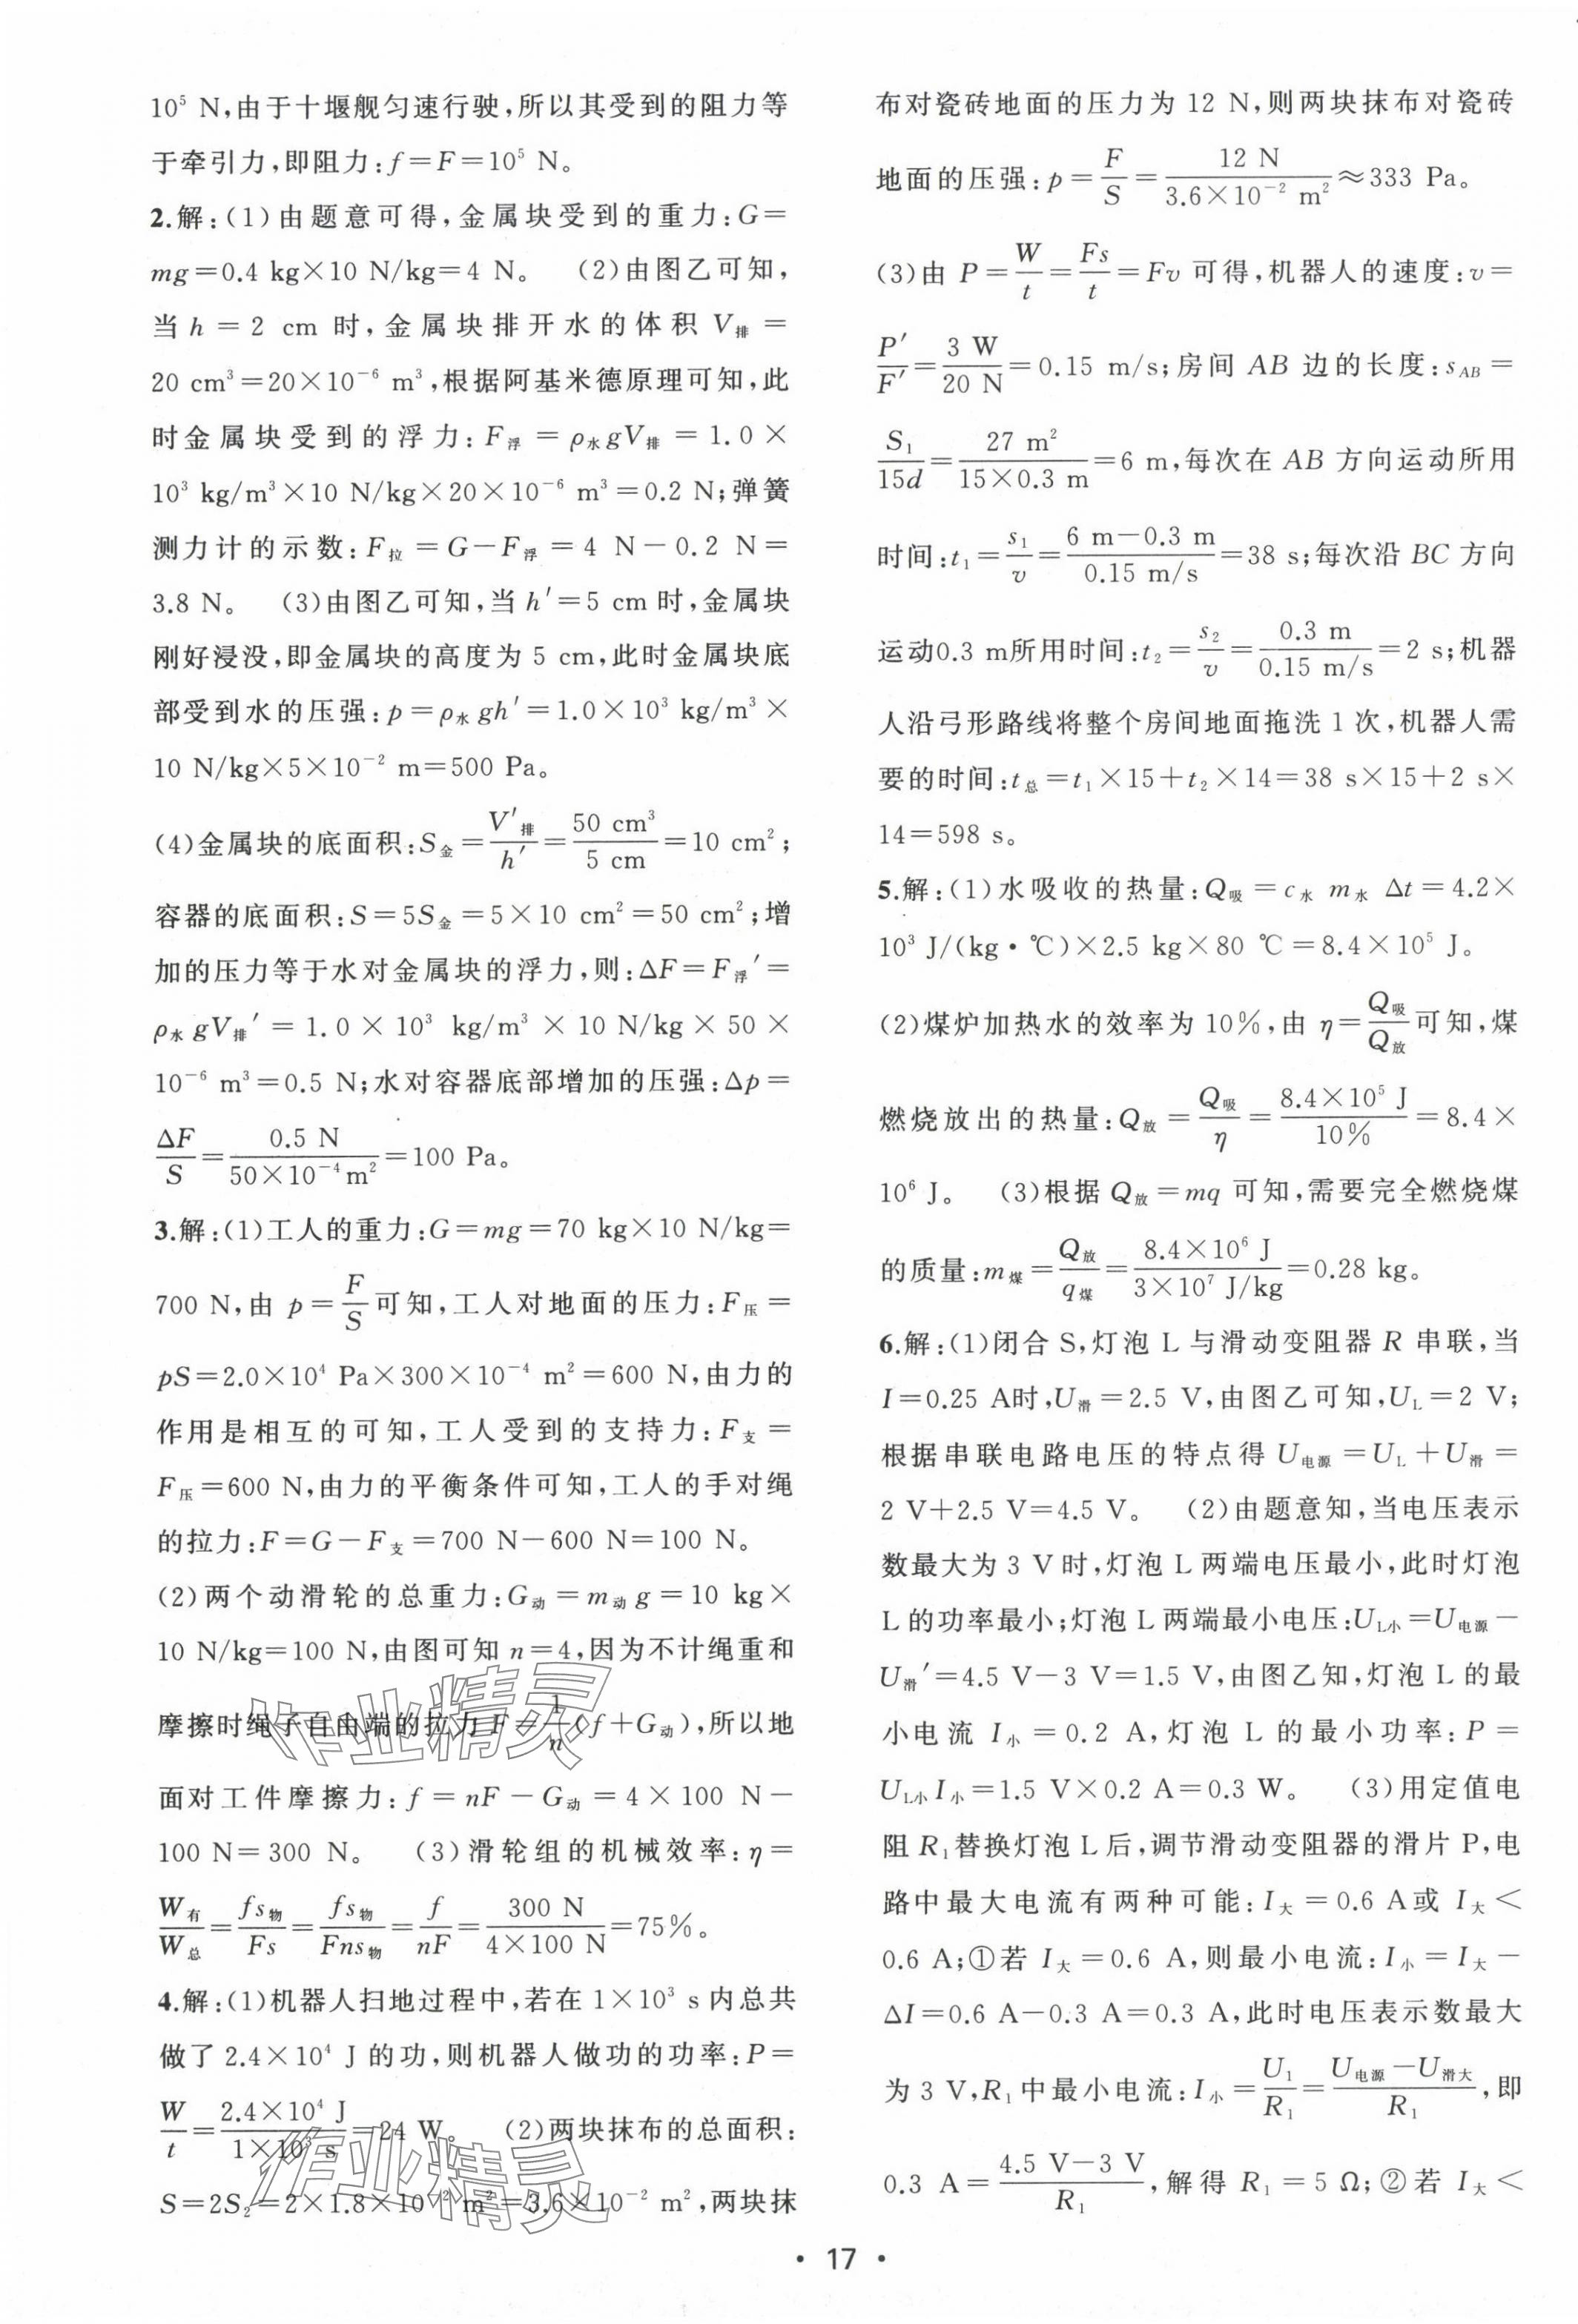 10⁵ N,由于十堰舰匀速行驶,所以其受到的阻力等
于牵引力,即阻力:f=F=10⁵ N。
2.解:(1)由题意可得,金属块受到的重力:G=
mg=0.4 kg×10 N/kg=4 N。 (2)由图乙可知,
当 h = 2 cm 时,金属块排开水的体积 V排 =
20 cm³=20×10⁻⁶ m³,根据阿基米德原理可知,此
时金属块受到的浮力:F浮 = ρ水gV排 = 1.0×
10³ kg/m³×10 N/kg×20×10⁻⁶ m³=0.2 N;弹簧
测力计的示数:F拉 = G-F浮 = 4 N-0.2 N=
3.8 N。 (3)由图乙可知,当 h′=5 cm 时,金属块
刚好浸没,即金属块的高度为 5 cm,此时金属块底
部受到水的压强:p=ρ水gh′=1.0×10³ kg/m³×
10 N/kg×5×10⁻² m=500 Pa。
(4)金属块的底面积:S金=V′排/h′=50 cm³/5 cm=10 cm²;
容器的底面积:S=5S金=5×10 cm²=50 cm²;增
加的压力等于水对金属块的浮力,则:ΔF=F浮′=
ρ水gV排′ = 1.0 × 10³ kg/m³ × 10 N/kg × 50 ×
10⁻⁶ m³=0.5 N;水对容器底部增加的压强:Δp=
ΔF/S=0.5 N/50×10⁻⁴m²=100 Pa。
3.解:(1)工人的重力:G=mg=70 kg×10 N/kg=
700 N,由 p=F/S可知,工人对地面的压力:F压=
pS=2.0×10⁴ Pa×300×10⁻⁴ m²=600 N,由力的
作用是相互的可知,工人受到的支持力:F支=
F压=600 N,由力的平衡条件可知,工人的手对绳
的拉力:F=G-F支=700 N-600 N=100 N。
(2)两个动滑轮的总重力:G动=m动g=10 kg×
10 N/kg=100 N,由图可知 n=4,因为不计绳重和
摩擦时绳子自由端的拉力 F=1/n(f+G动),所以地
面对工件摩擦力:f=nF-G动=4×100 N-
100 N=300 N。 (3)滑轮组的机械效率:η=
W有/W总=fs物/Fs=fs物/Fns物=f/nF=300 N/4×100 N=75%。
4.解:(1)机器人扫地过程中,若在 1×10³ s 内总共
做了 2.4×10⁴ J 的功,则机器人做功的功率:P=
W/t=2.4×10⁴ J/1×10³ s=24 W。 (2)两块抹布的总面积:
S=2S₂=2×1.8×10⁻² m²=3.6×10⁻² m²,两块抹
布对瓷砖地面的压力为 12 N,则两块抹布对瓷砖
地面的压强:p=F/S=12 N/3.6×10⁻² m²≈333 Pa。
(3)由 P=W/t=Fs/t=Fv 可得,机器人的速度:v=
P′/F′=3 W/20 N=0.15 m/s;房间 AB 边的长度:sAB=
S₁/15d=27 m²/15×0.3 m=6 m,每次在 AB 方向运动所用
时间:t₁=s₁/v=6 m-0.3 m/0.15 m/s=38 s;每次沿 BC 方向
运动0.3 m所用时间:t₂=s₂/v=0.3 m/0.15 m/s=2 s;机器
人沿弓形路线将整个房间地面拖洗 1 次,机器人需
要的时间:t总=t₁×15+t₂×14=38 s×15+2 s×
14=598 s。
5.解:(1)水吸收的热量:Q吸=c水 m水 Δt=4.2×
10³ J/(kg·℃)×2.5 kg×80 ℃=8.4×10⁵ J。
(2)煤炉加热水的效率为 10%,由 η=Q吸/Q放可知,煤
燃烧放出的热量:Q放=Q吸/η=8.4×10⁵ J/10%=8.4×
10⁶ J。 (3)根据 Q放=mq 可知,需要完全燃烧煤
的质量:m煤=Q放/q煤=8.4×10⁶ J/3×10⁷ J/kg=0.28 kg。
6.解:(1)闭合 S,灯泡 L 与滑动变阻器 R 串联,当
I=0.25 A时,U滑=2.5 V,由图乙可知,UL=2 V;
根据串联电路电压的特点得 U电源=UL+U滑=
2 V+2.5 V=4.5 V。 (2)由题意知,当电压表示
数最大为 3 V时,灯泡 L 两端电压最小,此时灯泡
L 的功率最小;灯泡 L 两端最小电压:UL小=U电源-
U滑′=4.5 V-3 V=1.5 V,由图乙知,灯泡 L 的最
小电流 I小=0.2 A,灯泡 L 的最小功率:P=
UL小I小=1.5 V×0.2 A=0.3 W。 (3)用定值电
阻 R₁替换灯泡 L 后,调节滑动变阻器的滑片 P,电
路中最大电流有两种可能:I大=0.6 A或 I大<
0.6 A;①若 I大=0.6 A,则最小电流:I小=I大-
ΔI=0.6 A-0.3 A=0.3 A,此时电压表示数最大
为 3 V,R₁中最小电流:I小=U₁/R₁=U电源-U滑大/R₁,即
0.3 A=4.5 V-3 V/R₁,解得 R₁=5 Ω;②若 I大<
· 17 ·
作业精灵
作业精灵